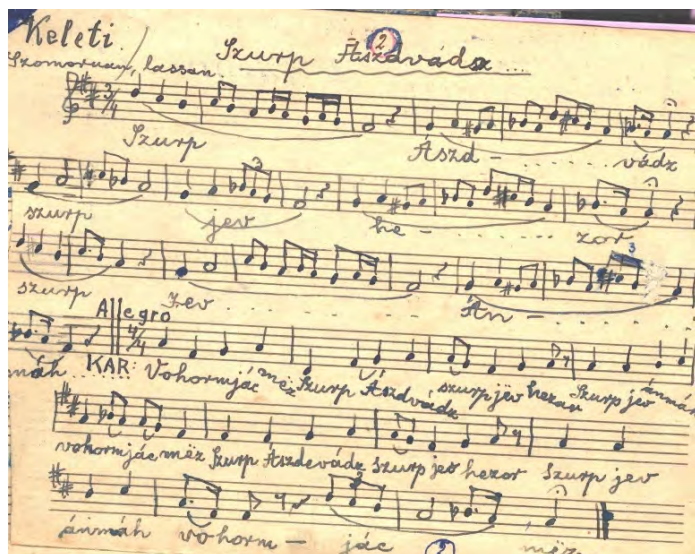 Keleti.
2
Szurp Ászdvádz...
Szomoruan, lassan.
3/4
Szurp Ászd - ....... vádz
3
szurp jev he - ....... zor
3
szurp Jev ....... Án - .......
Allegro
4/4
máh ...... KAR: Vohormjác mëz Szurp Ászdvádz szurp jëv hezor Szurp jev ánmáh
vohormjác mëz Szurp Ászdevádz szurp jev hezor Szurp jev
ánmáh vohorm - jác mëz
2